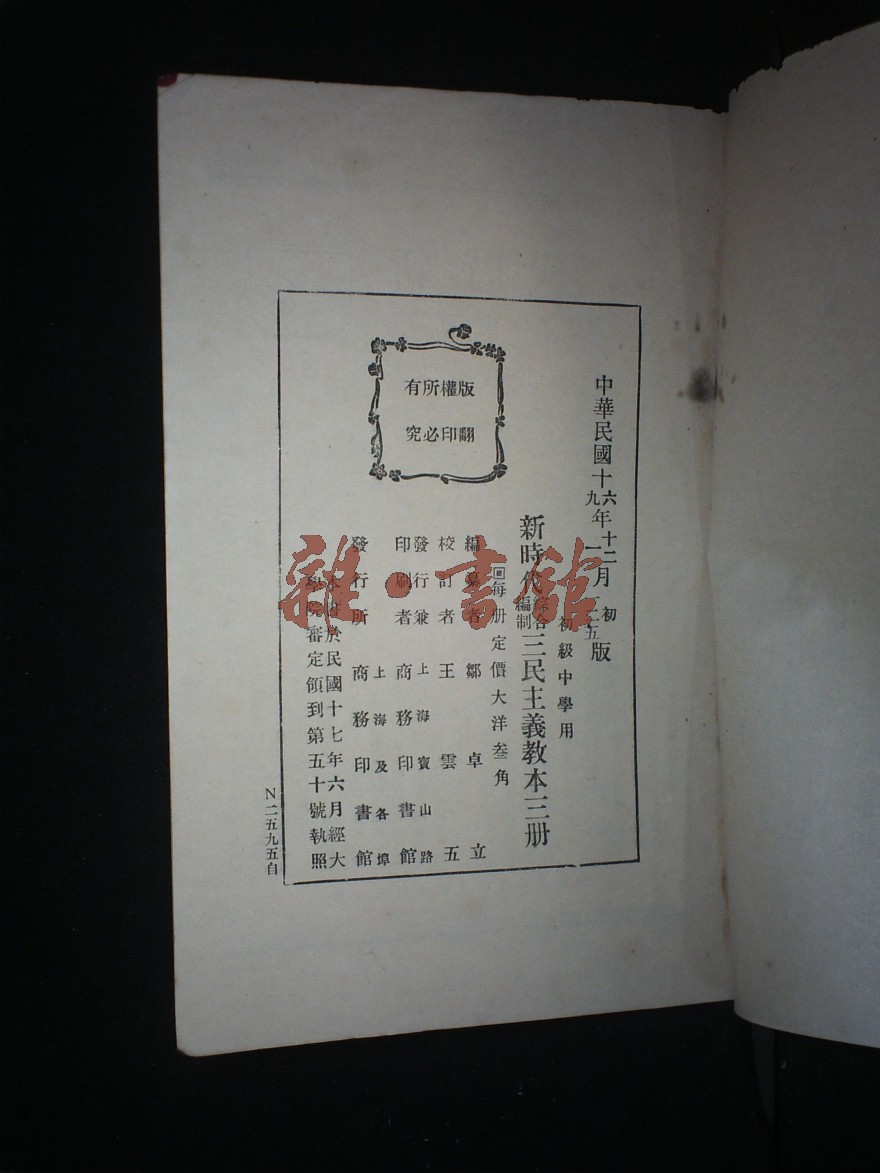 中華民國十六年十二月初版
九 一 一二五
初級中學用
新時代綜合編制三民主義教本三册
回每册定價大洋叁角
編纂者 鄒卓立
校訂者 王雲五
發行兼印刷者 上海寶山路 商務印書館
發行所 上海及各埠 商務印書館
本書於民國十七年六月經大
學院審定領到第五十號執照
版權所有
翻印必究
N二五九五自
雜·書館